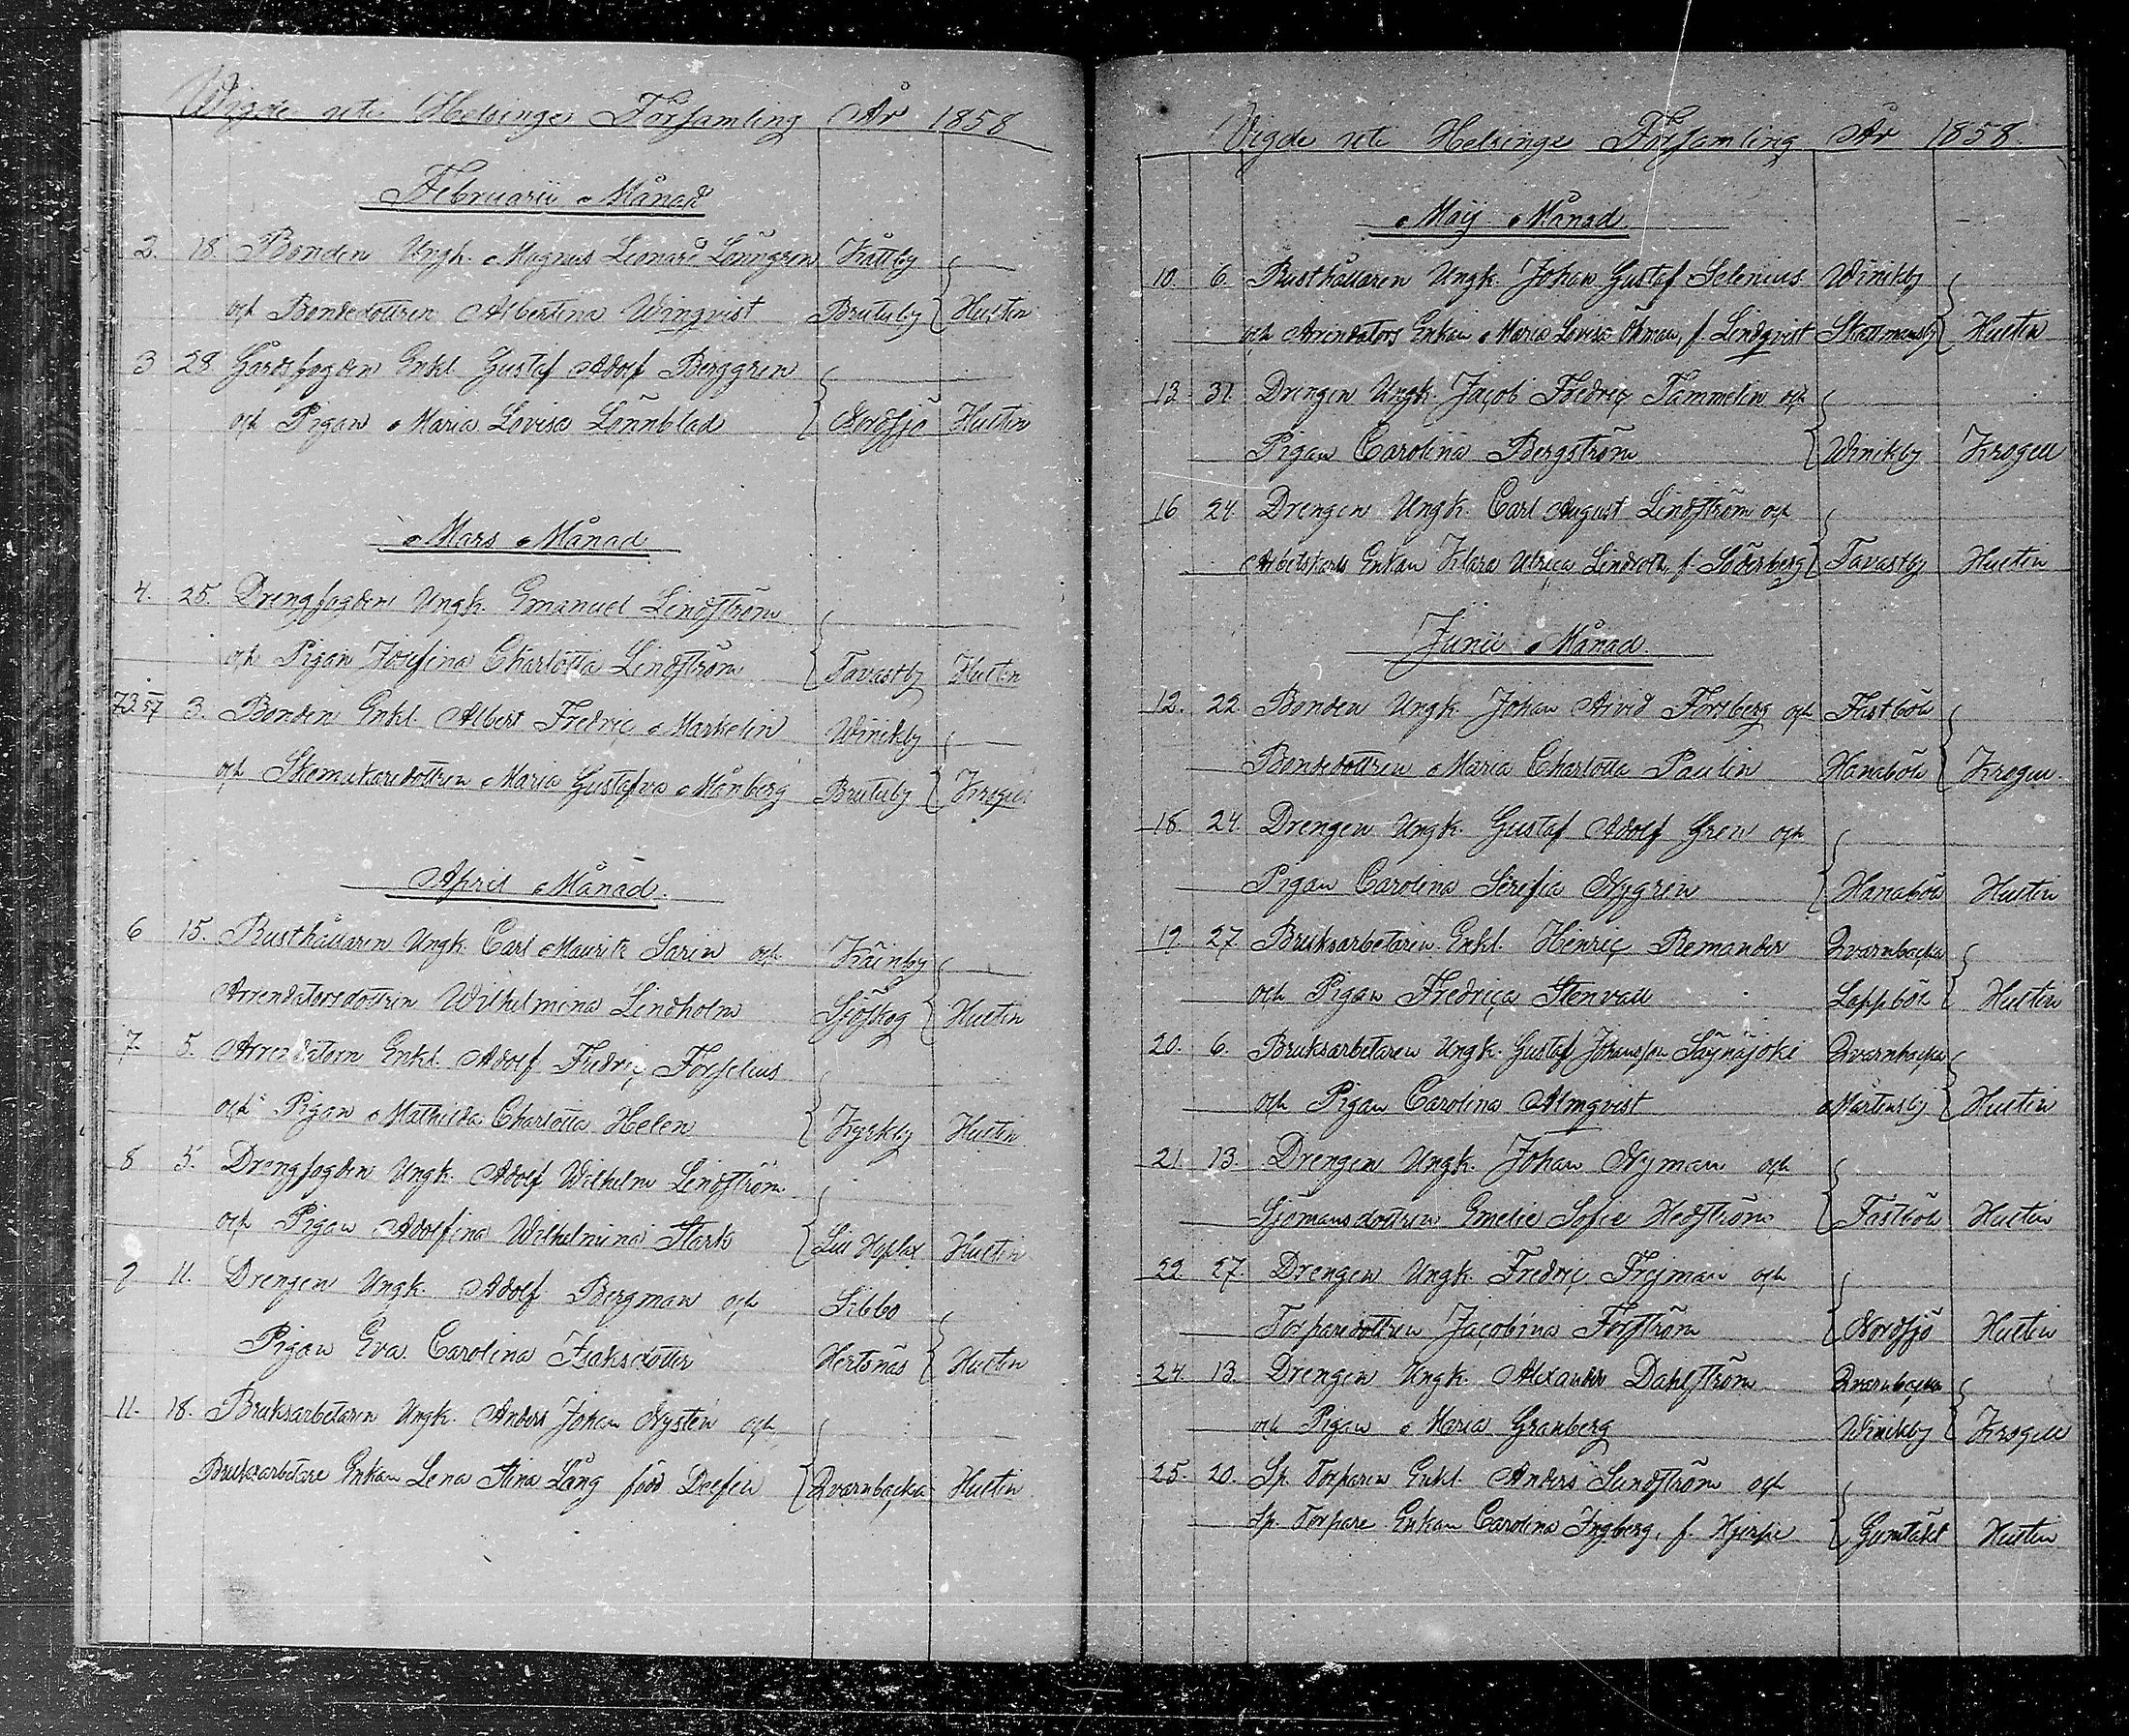 Wigde uti Helsinge Församling År 1858
Februarii Månad
2. 18. Bonden Ungk. Magnus Leonard Lönngren Kåttby
och Bondedottren Albertina Winqvist Brutuby Hultin
3 28 Gårdsfogden Enkl. Gustaf Adolf Berggren
och Pigan Maria Lovisa Lönnblad Nordsjö Hultin
Mars Månad
4. 25. Drengfogden Ungk. Emanuel Lindström
och Pigan Josefina Charlotta Lindström Tavastby Hultin
73.57 3. Bonden Enkl. Albert Fredric Markelin Winikby
och Skomakaredottren Maria Gustafva Månberg Brutuby Krogell
April Månad.
6 15. Rusthållaren Ungk. Carl Mauritz Sarin och Käinby
Arrendatorsdottren Wilhelmina Lindholm Sjöskog Hultin
7. 5. Arrendatorn Enkl. Adolf Fredric Forselius
och Pigan Mathilda Charlotta Helen Kyrkby Hultin
8 5. Drengfogden Ungk. Adolf Wilhelm Lindström
och Pigan Adolfina Wilhelmina Stark Lill Hoplax Hultin
9 11. Drengen Ungk. Adolf Bergman och Sibbo
Pigan Eva Carolina Isaksdotter Hertonäs Hultin
11. 18. Bruksarbetaren Ungk. Anders Johan Nystén och
Bruksarbetare Enkan Lena Stina Lång född Deefin Qvarnbacka Hultin
Vigde uti Helsinge Församling År 1858.
Maij Månad
10. 6. Rusthållaren Ungk. Johan Gustaf Selenius Winikby
och Arrendators Enkan Maria Lovisa Öhman, f. Lindqvist Skattmansby Hultin
13 31. Drengen Ungk. Jacob Fredric Tammelin och
Pigan Carolina Bergström Winikby Krogell
16 24. Drengen Ungk. Carl August Lindström och
Arbetskarls Enkan Klara Ulrica Lindroth, f. Söderberg Tavastby Hultin
Junii Månad.
12. 22 Bonden Ungk. Johan Arvid Forsberg och Fastböle
Bondedottren Maria Charlotta Paulin Hanaböle Krogell
18. 24. Drengen Ungk. Gustaf Adolf Gren och
Pigan Carolina Serefia Nygren Hanaböle Hultin
19. 27. Bruksarbetaren Enkl. Henric Remander Qvarnbacka
och Pigan Fredrica Stenvall Lappböle Hultin
20. 6. Bruksarbetaren Ungk. Gustaf Johansson Säynäjoki Qvarnbacka
och Pigan Carolina Almqvist Mårtensby Hultin
21. 13. Drengen Ungk. Johan Nyman och
Sjömansdottren Emelie Sofie Hedström Fastböle Hultin
22. 27. Drengen Ungk. Fredric Frejman och
Torparedottren Jacobina Forström Nordsjö Hultin
24. 13. Drengen Ungk. Alexander Dahlström Qvarnbacka
och Pigan Maria Granberg Winikby Krogell
25. 20. Sp. Torparen Enkl. Anders Sundström och
Sp. Torpare Enkan Carolina Ingberg, f. Hjerpe Gumtäkt Hultin